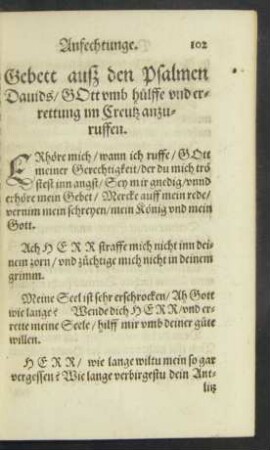 Anfechtunge. 102
Gebett auß den Psalmen
Dauids/ GOtt vmb hülffe vnd er-
rettung im Creutz anzu-
ruffen.
ERhöre mich/ wann ich ruffe/ GOtt
meiner Gerechtigkeit/ der du mich trö
stest inn angst/ Sey mir gnedig/ vnnd
erhöre mein Gebet/ Mercke auff mein rede/
vernim mein schreyen/ mein König vnd mein
Gott.
Ach HERR straffe mich nicht inn dei-
nem zorn/ vnd züchtige mich nicht in deinem
grimm.
Meine Seel ist sehr erschrocken/ Ah Gott
wie lange? Wende dich HERR/ vnd er-
rette meine Seele/ hilff mir vmb deiner güte
willen.
HERR/ wie lange wiltu mein so gar
vergessen? Wie lange verbirgestu dein Ant-
litz